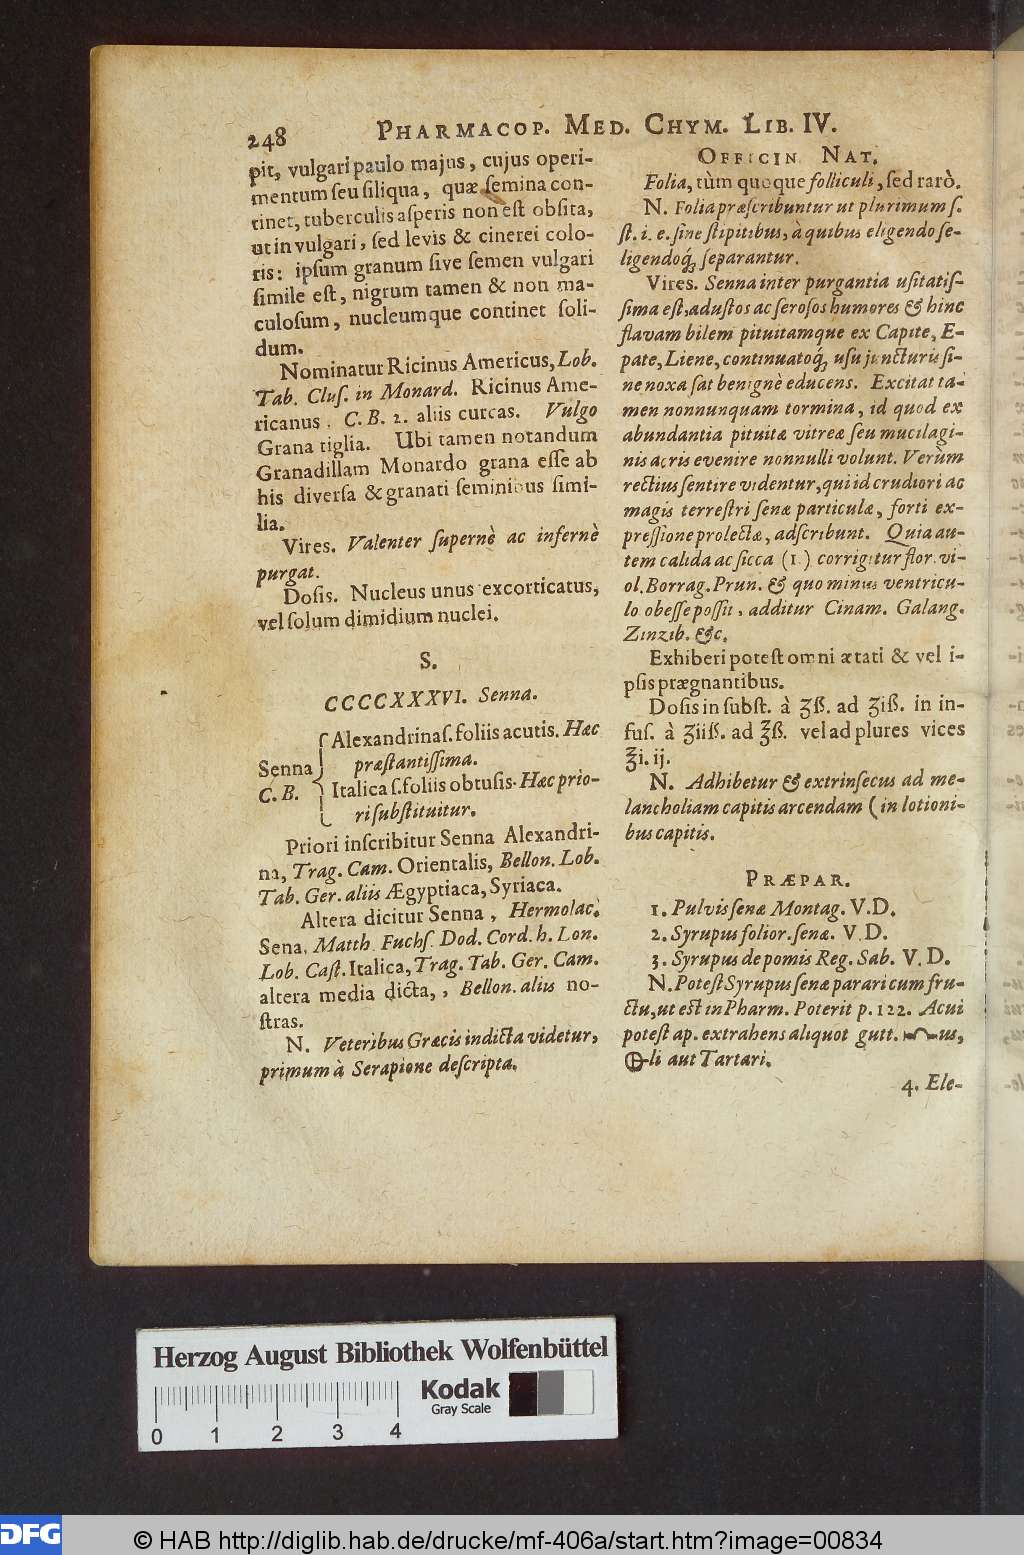 248 PHARMACOP. MED. CHYM. LIB. IV.
pit, vulgari paulo majus, cujus operi-
mentum seu siliqua, quæ semina con-
tinet, tuberculis asperis non est obsita,
ut in vulgari, sed levis & cinerei colo-
ris: ipsum granum sive semen vulgari
simile est, nigrum tamen & non ma-
culosum, nucleumque continet soli-
dum.
Nominatur Ricinus Americus, Lob.
Tab. Clus. in Monard. Ricinus Ame-
ricanus. C. B. 2. aliis curcas. Vulgo
Grana tiglia. Ubi tamen notandum
Granadillam Monardo grana esse ab
his diversa & granati seminibus simi-
lia.
Vires. Valenter supernè ac infernè
purgat.
Dosis. Nucleus unus excorticatus,
vel solum dimidium nuclei.
S.
CCCCXXXVI. Senna.
Alexandrina s. foliis acutis. Hæc
præstantissima.
Senna
C. B.
Italica s. foliis obtusis. Hæc prio-
ri substituitur.
Priori inscribitur Senna Alexandri-
na, Trag. Cam. Orientalis, Bellon. Lob.
Tab. Ger. aliis Ægyptiaca, Syriaca.
Altera dicitur Senna, Hermolao.
Sena, Matth. Fuchs. Dod. Cord. h. Lon.
Lob. Cast. Italica, Trag. Tab. Ger. Cam.
altera media dicta,, Bellon. aliis no-
stras.
N. Veteribus Græcis indicta videtur,
primum à Serapione descripta.
OFFICIN. NAT.
Folia, tùm quoque folliculi, sed rarò.
N. Folia præscribuntur ut plurimum s.
st. i. e. sine stipitibus, à quibus eligendo se-
ligendoq́; separantur.
Vires. Senna inter purgantia usitatis-
sima est, adustos ac serosos humores & hinc
flavam bilem pituitamque ex Capite, E-
pate, Liene, continuatoq́; usu juncturis si-
ne noxa sat benignè educens. Excitat ta-
men nonnunquam tormina, id quod ex
abundantia pituitæ vitreæ seu mucilagi-
nis acris evenire nonnulli volunt. Verùm
rectius sentire videntur, qui id crudiori ac
magis terrestri senæ particulæ, forti ex-
pressione prolectæ, adscribunt. Quia au-
tem calida ac sicca (1.) corrigitur flor. vi-
ol. Borrag. Prun. & quo minus ventricu-
lo obesse possit, additur Cinam. Galang.
Zinzib. &c.
Exhiberi potest omni ætati & vel i-
psis prægnantibus.
Dosis in subst. à ʒß. ad ʒiß. in in-
fus. à ʒiiß. ad ℥ß. vel ad plures vices
℥i. ij.
N. Adhibetur & extrinsecus ad me-
lancholiam capitis arcendam (in lotioni-
bus capitis.
PRÆPAR.
1. Pulvis senæ Montag. V. D.
2. Syrupus folior. senæ. V. D.
3. Syrupus de pomis Reg. Sab. V. D.
N. Potest Syrupus senæ parari cum fru-
ctu, ut est in Pharm. Poterit p. 122. Acui
potest ap. extrahens aliquot gutt. us,
li aut Tartari.
4. Ele-
Herzog August Bibliothek Wolfenbüttel
Kodak
Gray Scale
0 1 2 3 4
DFG © HAB http://diglib.hab.de/drucke/mf-406a/start.htm?image=00834